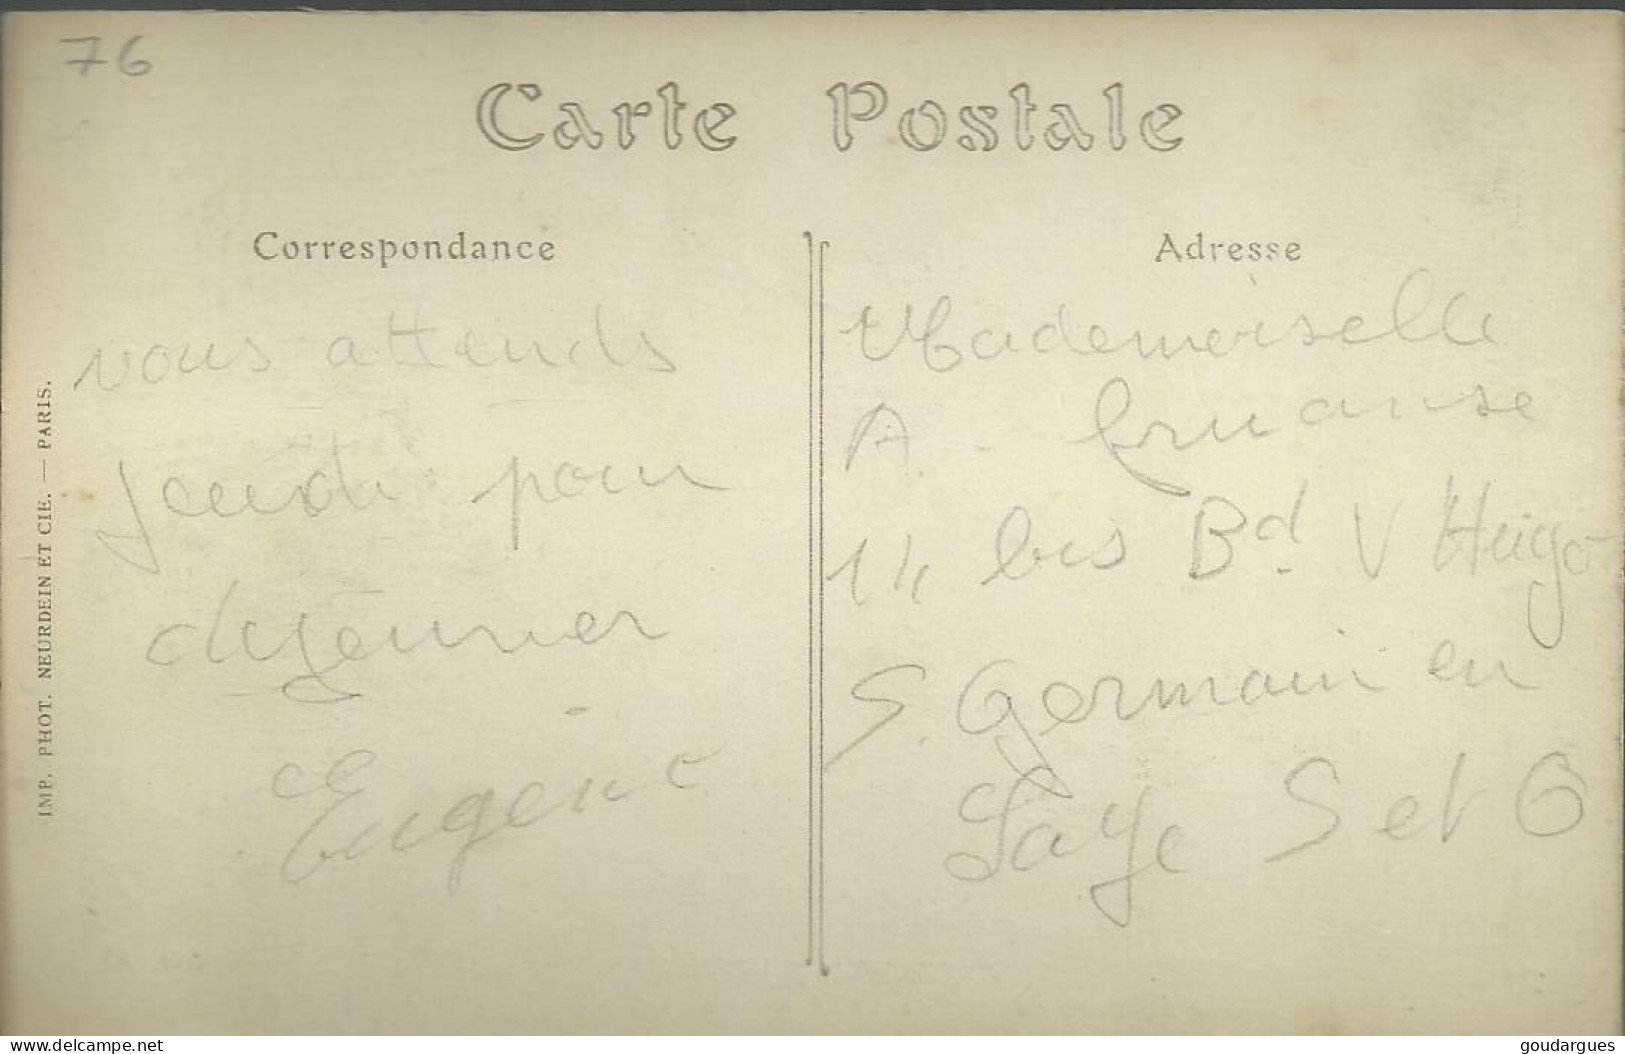 76
Carte Postale
Correspondance
vous attends
Jeudi pour
dejeunner
Eugène
Adresse
Mademoiselle
A.
14 bis Bd. V Hugo
S. Germain en
Laye S et O
IMP. PHOT. NEURDEIN ET CIE. — PARIS.
www.delcampe.net
goudargues